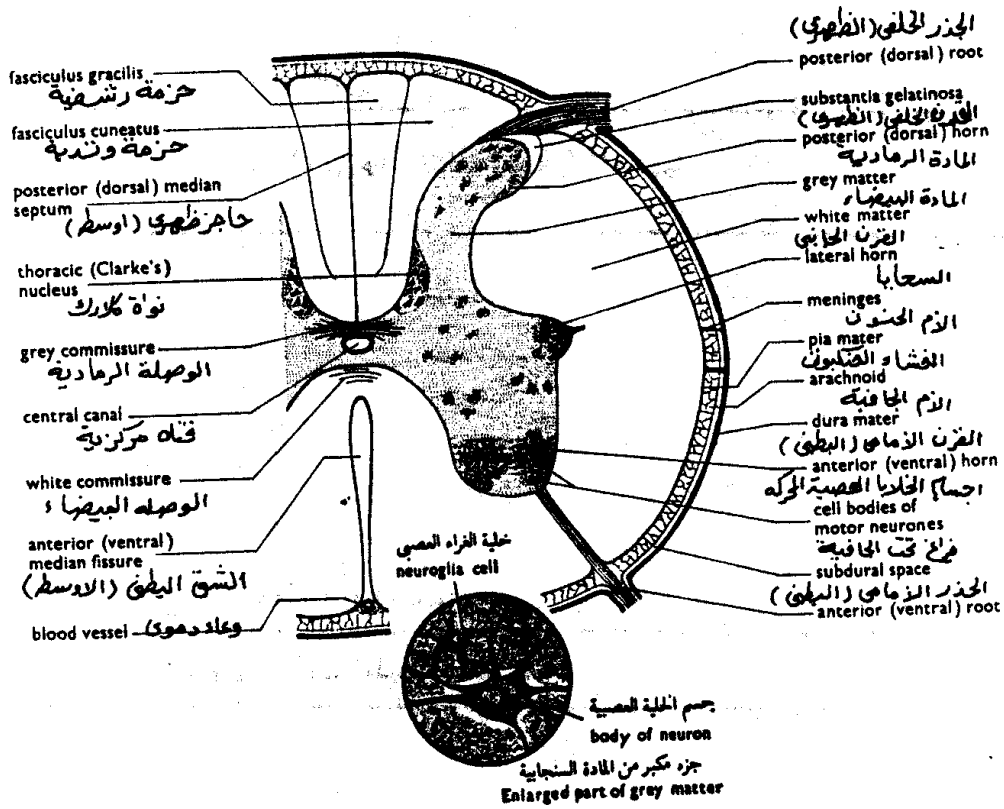 fasciculus gracilis
حزمة رشيقة
fasciculus cuneatus
حزمة وتدية
posterior (dorsal) median
septum حاجز ظهري (اوسط)
thoracic (Clarke's)
nucleus
نواة كلارك
grey commissure
الوصلة الرمادية
central canal
قناة مركزية
white commissure
الوصله البيضاء
anterior (ventral)
median fissure
الشق البطني (الاوسط)
blood vessel وعاء دموي
الجذر الخلفي (الظهري)
posterior (dorsal) root
substantia gelatinosa
القرن الخلفي (الظهري)
posterior (dorsal) horn
المادة الرمادية
grey matter
المادة البيضاء
white matter
القرن الجانبي
lateral horn
السحايا
meninges
الام الحنون
pia mater
الغشاء العنكبوتي
arachnoid
الام الجافية
dura mater
القرن الامامي (البطني)
anterior (ventral) horn
اجسام الخلايا العصبية الحركه
cell bodies of
motor neurones
فراغ تحت الجافية
subdural space
الجذر الامامي (البطني)
anterior (ventral) root
خلية الغراء العصبي
neuroglia cell
جسم الخلية العصبية
body of neuron
جزء مكبر من المادة السنجابية
Enlarged part of grey matter